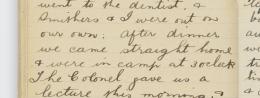 went to the dentist, &
Smithers & I were out on
our own. after dinner
we came straight home
& were in camp at 3oclock
The Colonel gave us a
lecture this morning. &